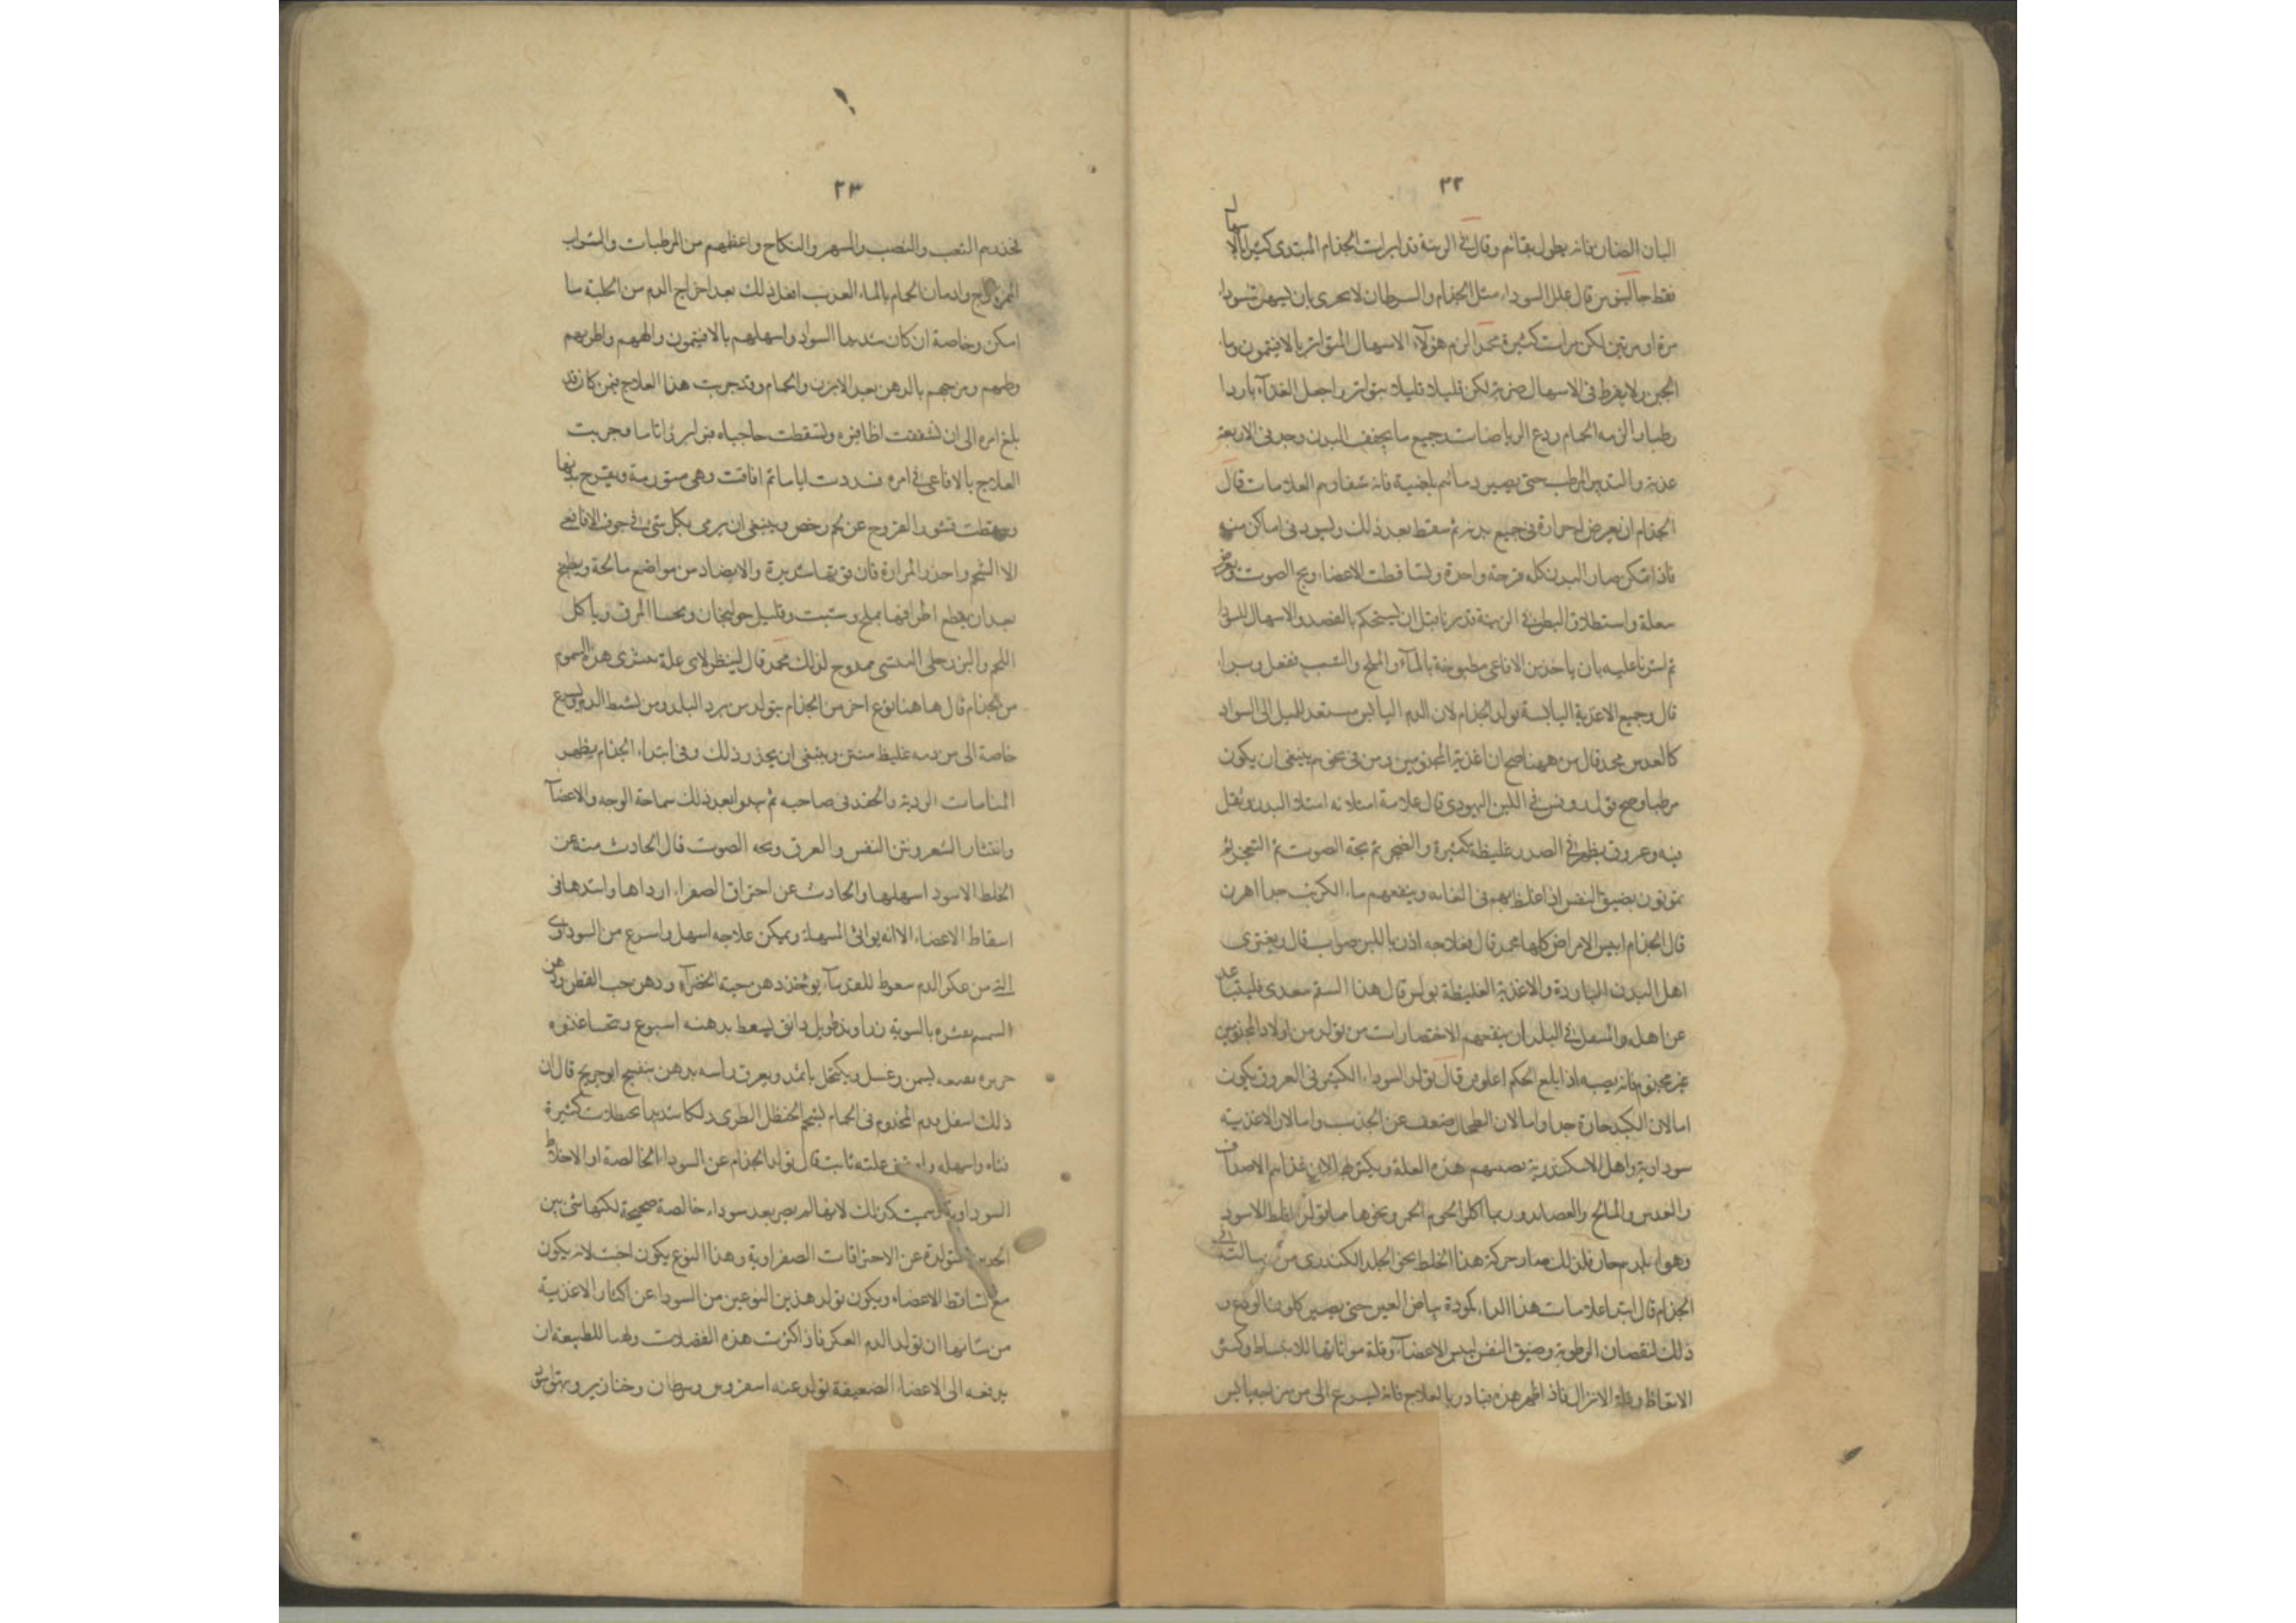 ٢٢
البان الضان فانه يطول بقائم وقال في الرسة قد ابرات الجذام المبتدى كثيرا بالاسهال
فقط جالينوس قال علل السوداء مثل الجذام والسرطان لا تحرى بان يسهل السوداء
مرة او مرتين لكن مرات كثيرة محمد الزم هؤلاء الاسهال المتواتر بالافتيمون وماء
الجبن ولا يفرط في الاسهال ضربة لكن قليلا قليلا بتواتر واجعل الغذاء باردا
رطبا والزمه الحمام ودع الرياضات وجميع ما يجفف البدن
والتدبير المرطب حتى يصير دمائهم بلغمية فانه شفاوهم العلامات قال
الجذام ان يعرض له حرارة في جميع بدنه ثم سقط بعد ذلك ويسود في اماكن منه
فاذا تمكن صار البدن كله قرحة واحدة وتساقطت الاعضاء وبح الصوت
سعلة واستطلاق البطن في قبل ان يستحكم بالفصد والاسهال للسودا
ثم اشرنا عليه بان ياخذ من الافاعى مطبوخة بالماء والملح والشبت ففعل وبرا
قال وجميع الاغذية اليابسة تولد الجذام لان الدم اليابس مستعد للميل الى السواد
كالعدس محمد قال من ههنا صح ان اغذية المجذومين ومن في نحوهم ينبغى ان يكون
مرطبا وصح قول روفس في اللبن اليهودى قال علامة امتلائه امتلاء البدن وثقل
فيه وعروق يظهر في الصدر غليظة كثيرة والضجر ثم بحة الصوت ثم
يموتون بضيق النفس اذا غلظ بهم في الغاية وينفعهم ماء الكرنب جدا اهرن
قال الجذام ايبس الامراض كلها محمد قال فعلاجه اذن باللبن صواب قال ويعترى
اهل البدن الباردة والاغذية الغليظة بولس قال هذا السقم معدى فليتباعد
عن اهله والمسفل في البلدان ينفعهم الاختصارات من تولد من اولاد المجذومين
غير مجذوم فانه يصيبه اذا بلغ الحكم اغلوقن قال تولد السوداء الكثير في العروق يكون
اما لان الكبد حارة جدا واما لان الطحال ضعف عن الجذب واما لان الاغذية
سوداوية واهل الاسكندرية تصيبهم هذه العلة ويكثر بهم لان غذاهم الاصداف
والعدس والمالح والعصائد وربما اكلوا لحوم الحمر ونحوها مما يولد الخلط الاسود
وهواء بلدهم حار فلذلك صار حركة هذا الخلط نحو الجلد الكندى من رسالته في
الجذام قال ابتداء علامات هذا الداء كمودة بياض العين حتى يصير كلون الودع و
ذلك لنقصان الرطوبة وضيق النفس ليبس الاعضاء وقلة مواتاتها للانبساط وكثرة
الانعاظ وقلة الانزال فاذا ظهر هذه فبادر بالعلاج فانه يسرع الى من مزاجه يابس
٢٣
تحذرهم التعب والنصب والسهر والنكاح واعطهم من المرطبات والشراب
الممزوج وادمان الحمام بالماء العذب افعل ذلك بعد اخراج الدم من الحلبة ما
امكن وخاصة ان كان شديد السواد واسهلهم بالافتيمون والههم واطربهم
وطبهم ومرخهم بالدهن بعد الابزن والحمام وقد جربت هذا العلاج فيمن كان قد
بلغ امره الى ان تشققت اظافره وتسقطت حاجباه فبرا برءا تاما وجربت
العلاج بالافاعى في امره اياما ثم افاقت وهى متورمة وتقرح بدنها
وسقطت قشور القروح عن لحم رخص وينبغى ان يرمى بكل شى في جوف الافاعى
الا الشحم واحذر المرارة فان قوتها شديدة والا يصاد من مواضع مالحة ويطبخ
بعد ان يقطع اطرافها بملح وشبت وقليل خولنجان ويحسا المرق وياكل
اللحم والبزر جلى ممدوح لذلك محمد قال لينظر لاى علة هذه السموم
من الجذام قال ها هنا نوع اخر من الجذام يتولد من برد البلد ويسرع
خاصة الى من دمه غليظ منتن وينبغى ان يحذر ذلك وفي ابتداء الجذام يظهر
المنامات الردية والحقد في صاحبه ثم يبدوا بعد ذلك سماجة الوجه والاعضاء
وانتثار الشعر ونتن النفس والعرق وبحه الصوت قال الحادث منه عن
الخلط الاسود اسهلها والحادث عن احتراق الصفراء ارداها واشدها في
اسقاط الاعضاء الا انه يواتى المسهلة ويمكن علاجه اسهل واسرع من السوداوى
التى من عكر الدم سعوط للقدماء يوخذ دهن حبة الخضراء ودهن حب القطن ودهن
السمسم عشرة بالسوية زراوند طويل دانق يسعط بدهنه اسبوع
بسمن وعسل ويكتحل باثمد ويعرق راسه بدهن بنفسج ابو جريج قال ان
ذلك اسفل قدم المجذوم في الحمام بشحم الحنظل الطرى دلكا شديدا كثيرة
واسهله علته ثابت قال تولد الجذام عن السوداء الخالصة او الاخلاط
السوداوية كذلك لانها لم يصر بعد سوداء خالصة صحيحة لكنها شى بين
المتولدة عن الاحتراقات الصفراوية وهذا النوع يكون اخبث لانه يكون
مع تساقط الاعضاء ويكون تولد هذين النوعين من السوداء عن اكثار الاغذية
من شانها ان تولد الدم العكر فاذا كثرت هذه الفضلات ولهما للطبيعة ان
يدفعه الى الاعضاء الضعيفة تولد عنه اسقيروس وسرطان وخنازير وبهق